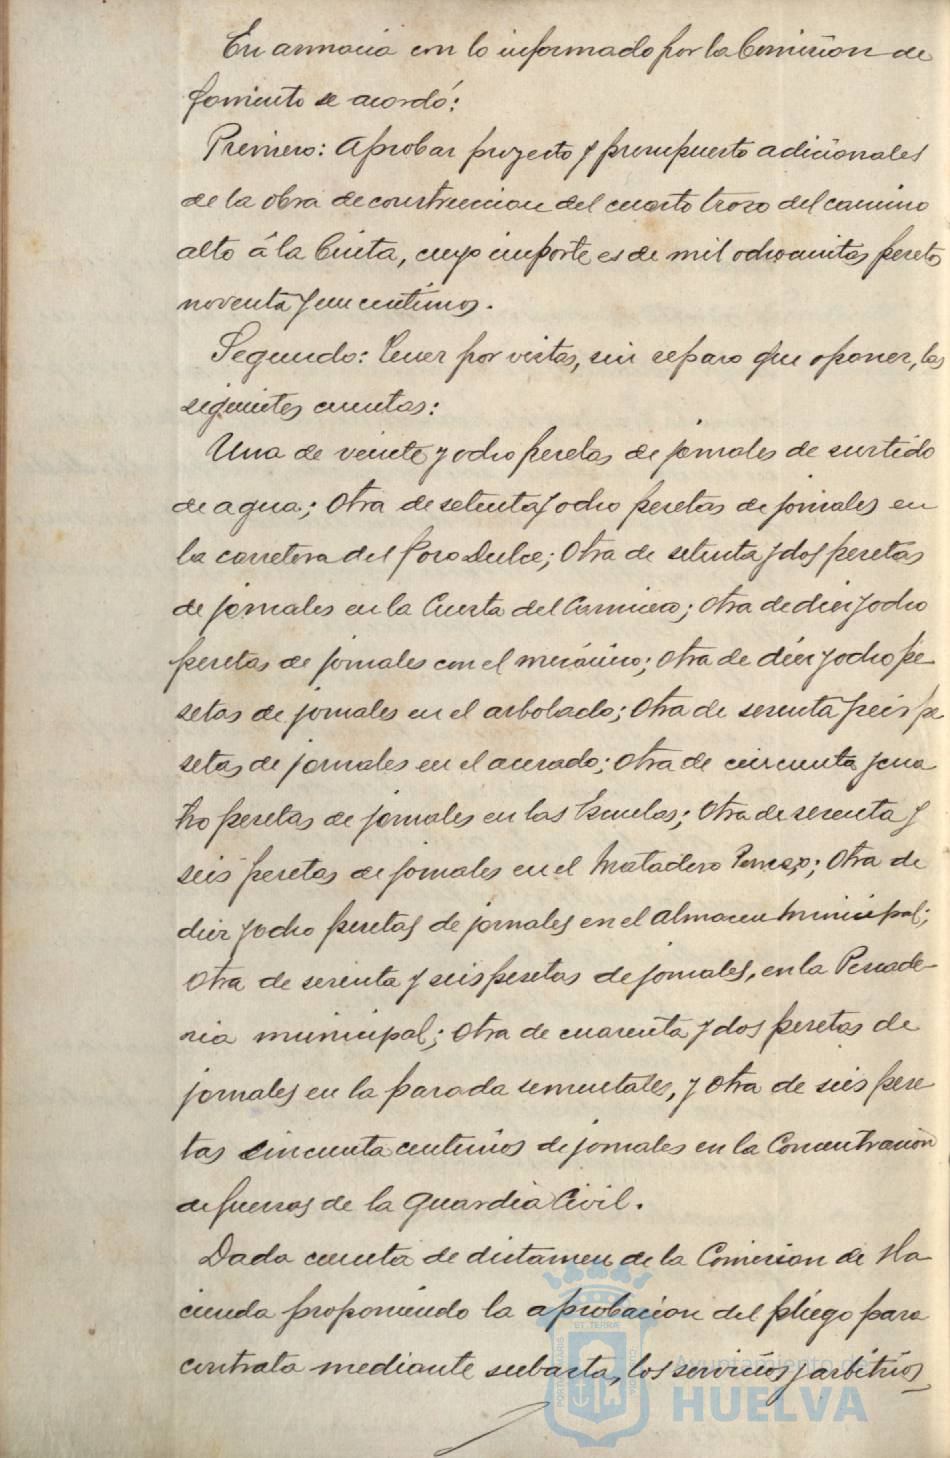 En armonia con lo informado por la Comision de
fomento se acordó:
Primero: Aprobar proyecto y presupuesto adicionales
de la obra de construccion del cuarto trozo del camino
alto á la Cinta, cuyo importe es de mil ochocientas pesetas
noventa y un centimos.
Segundo: Tener por vistas, sin reparo que oponer, las
siguientes cuentas:
Una de veinte y ocho pesetas de jornales de surtido
de agua; Otra de setenta y ocho pesetas de jornales en
la carretera del Pozo Dulce; Otra de setenta y dos pesetas
de jornales en la Cuesta del Carnicero; Otra de diez y ocho
pesetas de jornales con el mecánico; Otra de diez y ocho pe
setas de jornales en el arbolado; Otra de sesenta y seis pe
setas de jornales en el acerado; Otra de cincuenta y cua
tro pesetas de jornales en las Escuelas; Otra de sesenta y
seis pesetas de jornales en el Matadero; Otra de
diez y ocho pesetas de jornales en el Almacen Municipal;
Otra de sesenta y seis pesetas de jornales, en la Pescade-
ria municipal; Otra de cuarenta y dos pesetas de
jornales en la parada sementales, y Otra de seis pese
tas cincuenta centimos de jornales en la Concentracion
de fuerzas de la Guardia Civil.
Dada cuenta de dictamen de la Comision de Ha
cienda proponiendo la aprobacion del pliego para
contrata mediante subasta, los servicios y arbitrios
Ayuntamiento de
HUELVA